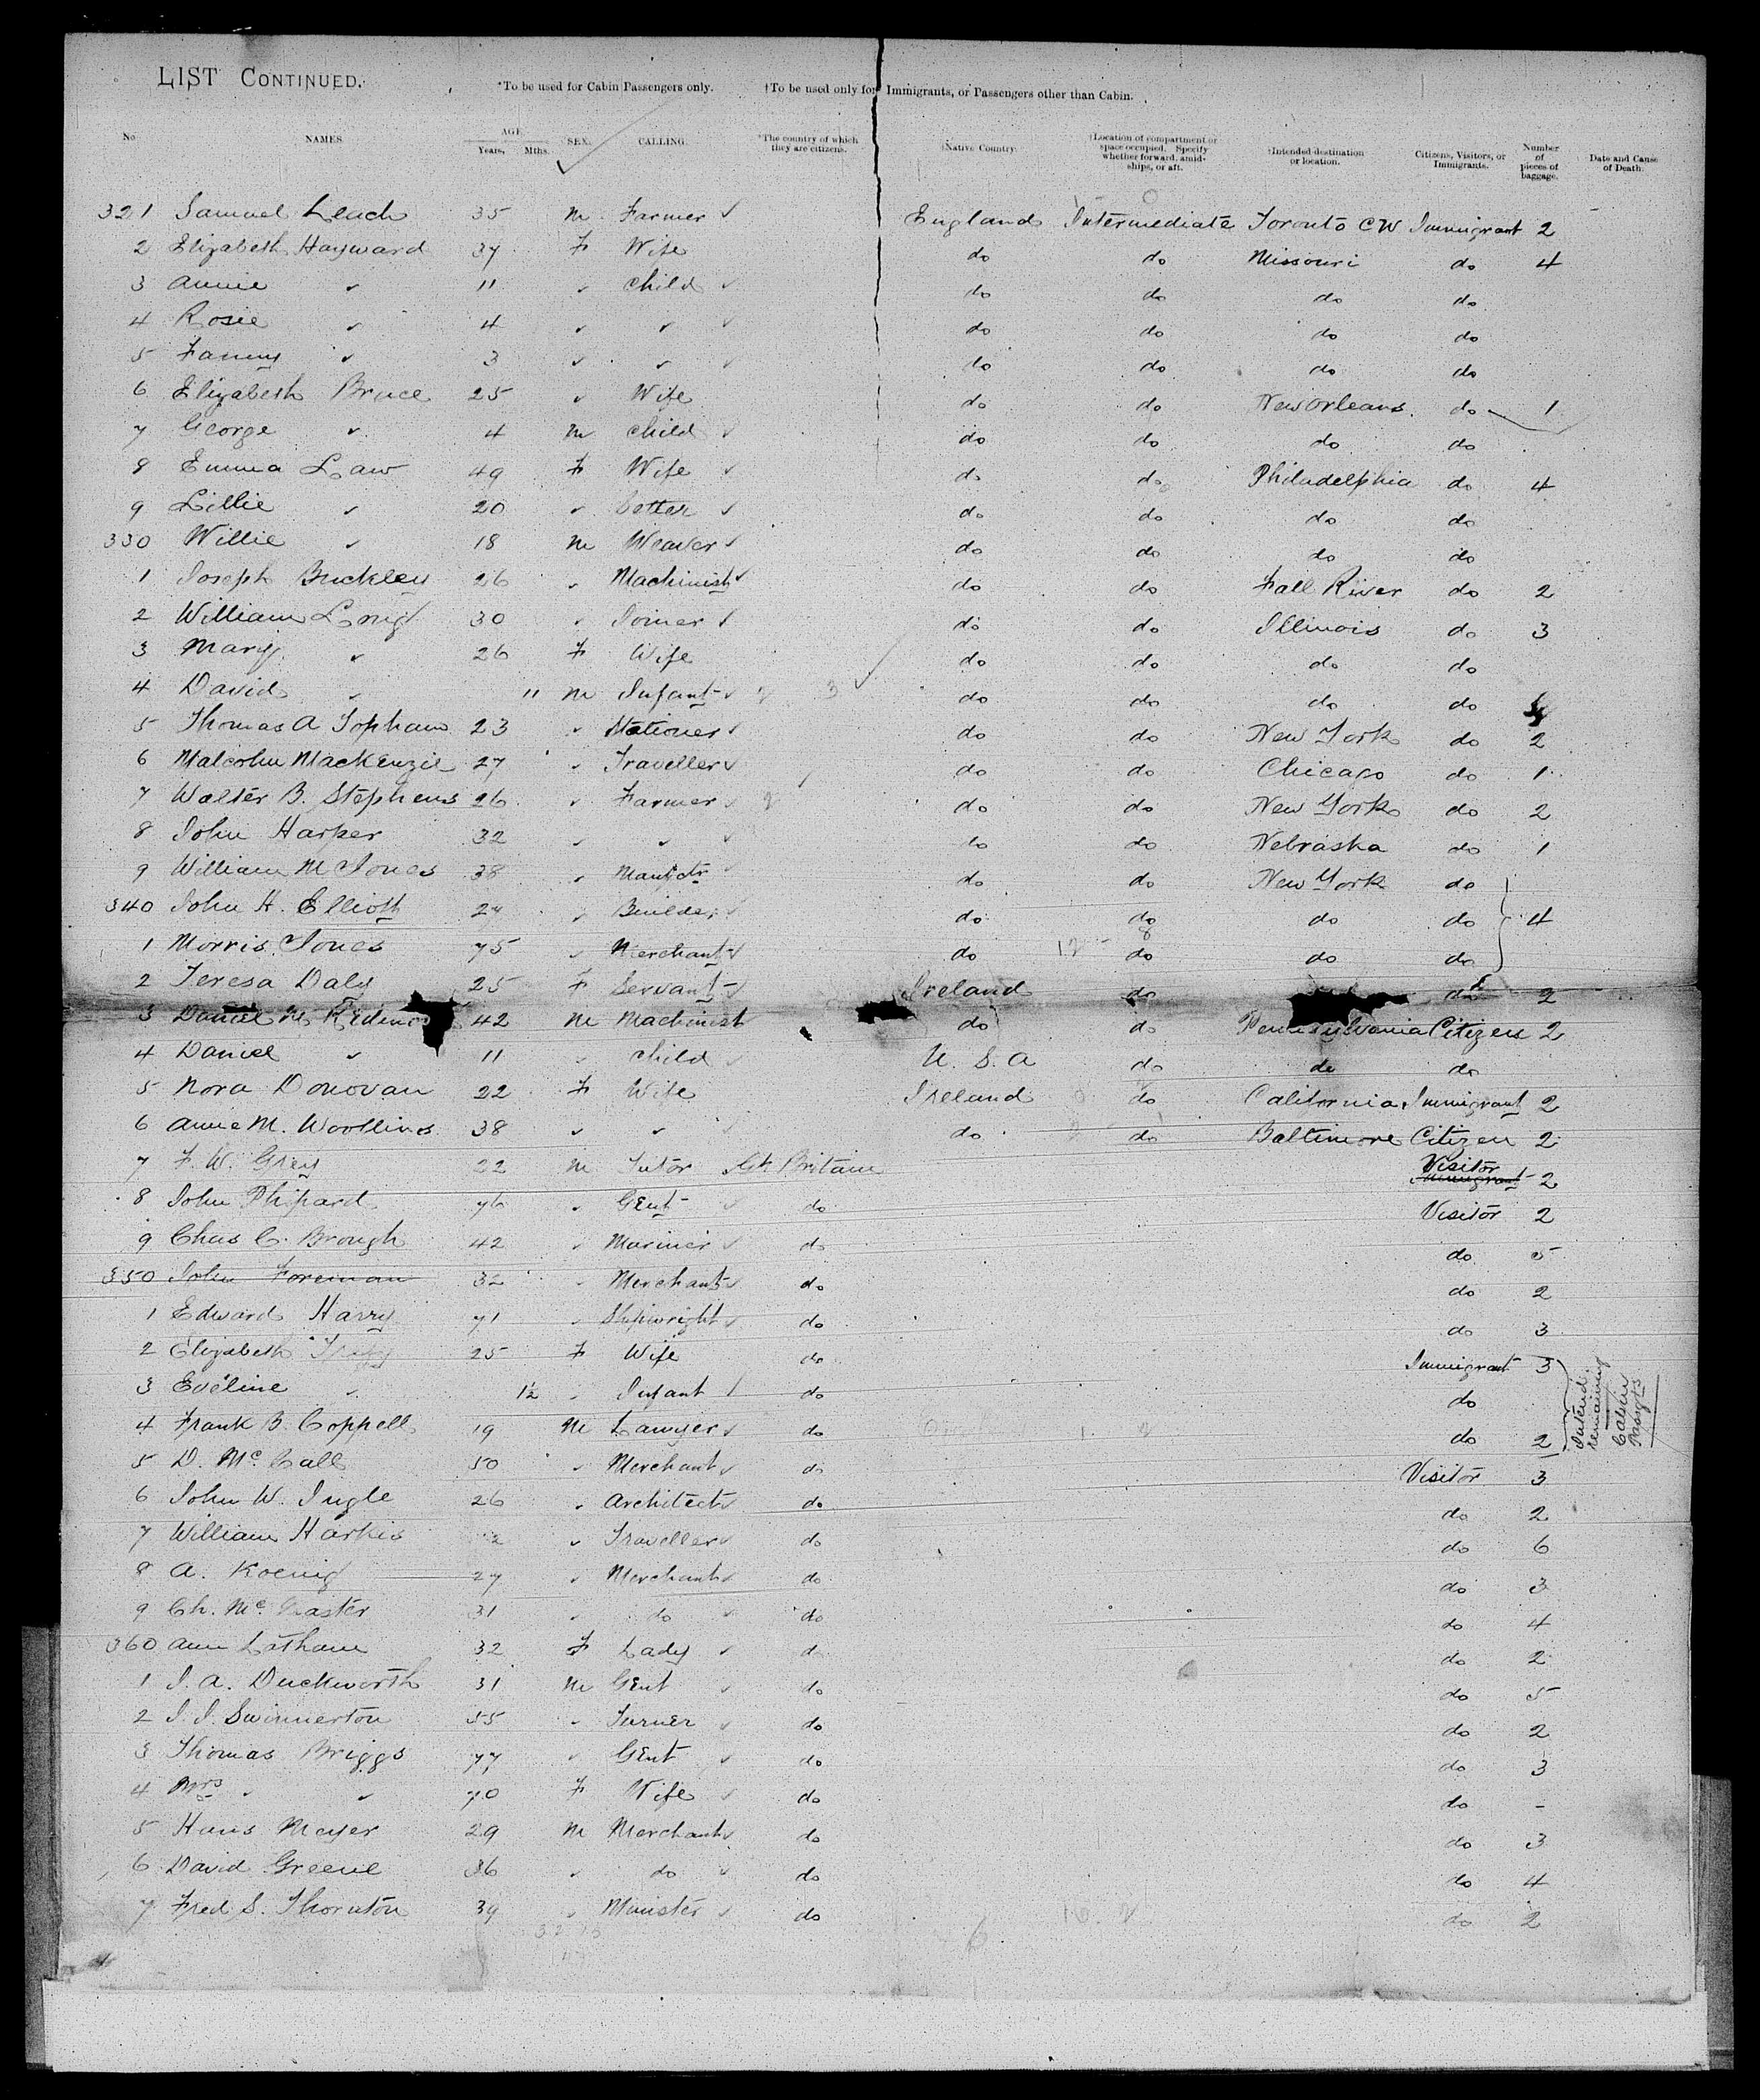 LIST CONTINUED.
*To be used for Cabin Passengers only. †To be used only for Immigrants, or Passengers other than Cabin.
No. NAMES. AGE. Years. Mths. SEX. CALLING. *The country of which they are citizens. †Native Country. †Location of compartment or space occupied. Specify whether forward, amidships, or aft. †Intended destination or location. Citizens, Visitors, or Immigrants. Number of pieces of baggage. Date and Cause of Death.
321 Samuel Leach 35 M Farmer England Intermediate Toronto CW Immigrant 2
2 Elizabeth Hayward 37 F Wife do do Missouri do 4
3 Annie " 11 " Child do do do do
4 Rosie " 4 " " do do do do
5 Fanny " 3 " " do do do do
6 Elizabeth Bruce 25 " Wife do do New Orleans do 1
7 George " 4 M Child do do do do
8 Emma Law 49 F Wife do do Philadelphia do 4
9 Lillie " 20 " do do do do
330 Willie " 18 M Weaver do do do do
1 Joseph Buckley 26 " Machinist do do Fall River do 2
2 William Long 30 " Joiner do do Illinois do 3
3 Mary " 26 F Wife do do do do
4 David " 11 M Infant do do do do
5 Thomas A Topham 23 " Stationer do do New York do 2
6 Malcolm MacKenzie 27 " Traveller do do Chicago do 1
7 Walter B. Stephens 26 " Farmer do do New York do 2
8 John Harper 32 " " do do Nebraska do 1
9 William M Jones 38 " Manfctr do do New York do
340 John H. Elliott 27 " Builder do do do do 4
1 Morris Jones 75 " Merchant do do do do
2 Teresa Daly 25 F Servant Ireland do do 2
3 Daniel M 42 M Machinist do do Pennsylvania Citizen 2
4 Daniel " 11 " Child U.S.A do do do
5 Nora Donovan 22 F Wife Ireland do California Immigrant 2
6 Annie M. Woollins 38 " " do do Baltimore Citizen 2
7 F. W. Grey 22 M Tutor Gt. Britain Visitor Immigrant 2
8 John Phipard 76 " Gent do Visitor 2
9 Chas C. Brough 42 " Mariner do do 5
350 John Foreman 32 " Merchant do do 2
1 Edward Harry 71 " Shipwright do do 3
2 Elizabeth 25 F Wife do Immigrant 3
3 Eveline " 1½ " Infant do do
4 Frank B. Coppell 19 M Lawyer do do 2
Intend. remaining Cabin Passgrs
5 D. McCall 50 " Merchant do Visitor 3
6 John W. Ingle 26 " Architect do do 2
7 William Harkis " Traveller do do 6
8 A. Koenig 27 " Merchant do do 3
9 Ch. McMaster 31 " do do do 4
360 Ann Latham 32 F Lady do do 2
1 J. A. Duckworth 31 M Gent do do 5
2 J. J. Swinnerton 55 " Turner do do 2
3 Thomas Briggs 77 " Gent do do 3
4 Mrs " " 70 F Wife do do -
5 Hans Meyer 29 M Merchant do do 3
6 David Greene 36 " do do do 4
7 Fred S. Thornton 39 " Minister do do 2